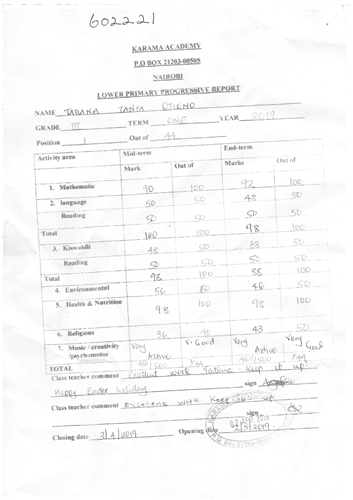 602221
KARAMA ACADEMY
P.O BOX 21203-00505
NAIROBI
LOWER PRIMARY PROGRESSIVE REPORT
NAME TATIANA TANYA OTIENO
GRADE III TERM ONE YEAR 2019
Position 1 Out of 44
Activity area Mid-term End-term
Mark Out of Marks Out of
1. Mathematic 90 100 92 100
2. language 50 50 48 50
Reading 50 50 50 50
Total 100 100 98 100
3. Kiswahili 48 50 38 50
Reading 50 50 50 50
Total 98 100 88 100
4. Environmental 56 46 50
5. Health & Nutrition 98 100 98 100
6. Religious 36 43 50
7. Music / creativity /psychomotor Very Active V. Good Very Active Very Good
TOTAL 465/500
Class teacher comment Excellent work Tatiana. Keep it up!
Happy Easter holiday sign
Class teacher comment Excellent work. Keep it up sign
Closing date 3/4/2019 Opening date 2/5/2019